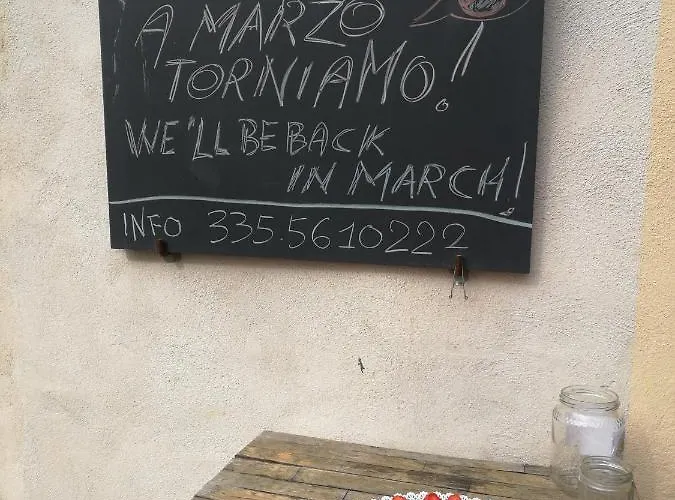 A MARZO
TORNIAMO!
WE'LL BE BACK
IN MARCH!
INFO 335.5610222